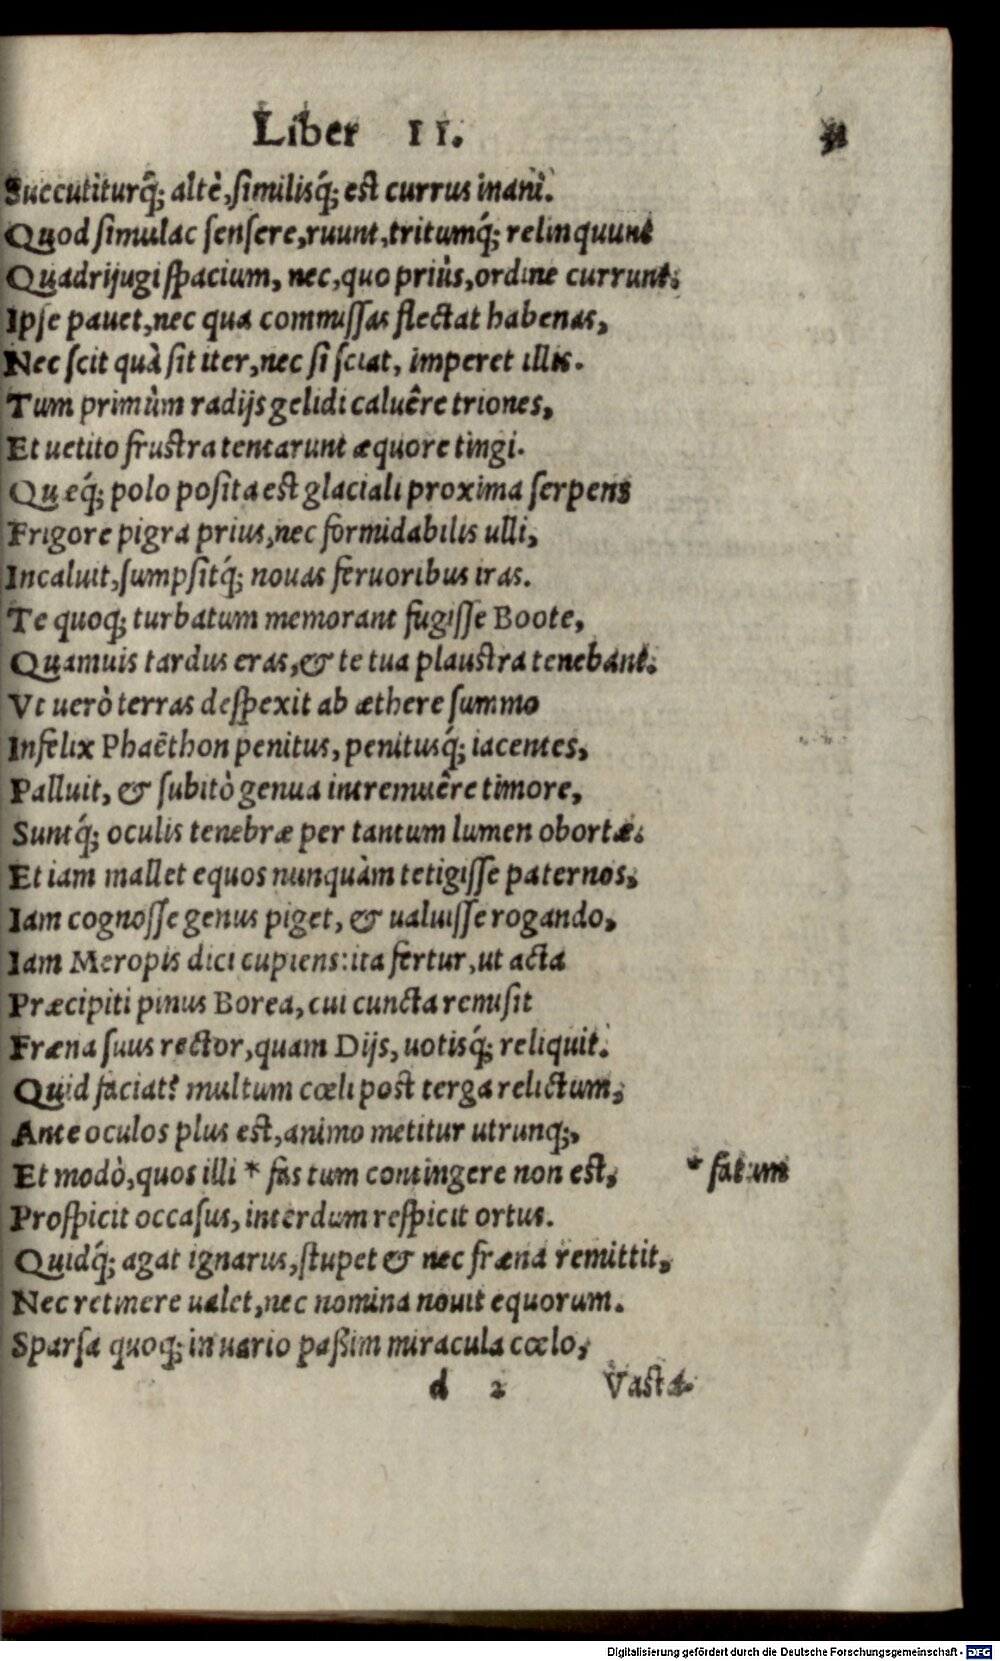 Liber II.
Succutiturq́; altè, similisq́; est currus inani.
Quod simulac sensere, ruunt, tritumq́; relinquunt
Quadrijugi spacium, nec, quo priùs, ordine currunt.
Ipse pauet, nec qua commissas flectat habenas,
Nec scit quà sit iter, nec si sciat, imperet illis.
Tum primùm radijs gelidi caluêre triones,
Et uetito frustra tentarunt æquore tingi.
Quæq́; polo posita est glaciali proxima serpens
Frigore pigra prius, nec formidabilis ulli,
Incaluit, sumpsitq́; nouas feruoribus iras.
Te quoq; turbatum memorant fugisse Boote,
Quamuis tardus eras, & te tua plaustra tenebant.
Vt uerò terras despexit ab æthere summo
Infelix Phaëthon penitus, penitusq́; iacentes,
Palluit, & subitò genua intremuêre timore,
Suntq́; oculis tenebræ per tantum lumen obortæ.
Et iam mallet equos nunquàm tetigisse paternos,
Iam cognosse genus piget, & ualuisse rogando,
Iam Meropis dici cupiens: ita fertur, ut acta
Præcipiti pinus Borea, cui cuncta remisit
Fræna suus rector, quam Dijs, uotisq́; reliquit.
Quid faciat? multum cœli post terga relictum,
Ante oculos plus est, animo metitur utrunq;,
Et modò, quos illi * fas tum contingere non est, * fatum
Prospicit occasus, interdum respicit ortus.
Quidq́; agat ignarus, stupet & nec fræna remittit,
Nec retinere ualet, nec nomina nouit equorum.
Sparsa quoq; in uario paßim miracula cœlo,
d 2 Vasta-
Digitalisierung gefördert durch die Deutsche Forschungsgemeinschaft - DFG